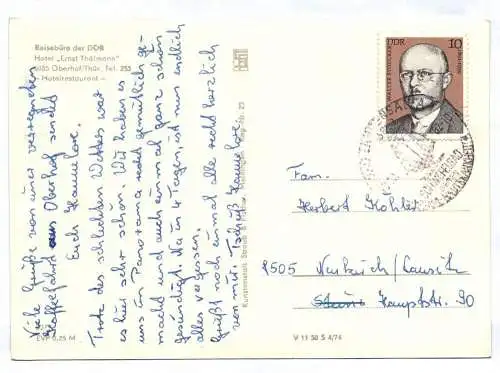 Reisebüro der DDR
Hotel „Ernst Thälmann"
6055 Oberhof/Thür. Tel. 255
– Hotelrestaurant –
Viele Grüße von einer verregneten
Kaffeefahrt aus Oberhof sendet
Euch Hannelore.
Trotz des schlechten Wetters war
es hier sehr schön. Wir haben es
uns im Panorama recht gemütlich ge-
macht und auch einmal ganz schön
gesündigt. Na in 4 Tagen, ist nun endlich
alles vergessen.
Grüßt noch einmal alle recht herzlich
von mir. Tschüß Hannelore.
EVP 0,25 M
Kunstanstalt Straub & Fischer, Meiningen
DDR 10
Fam.
Herbert Kohler
8505 Neukirch/Lausitz
Hauptstr. 90
V 11 50 S 4/74